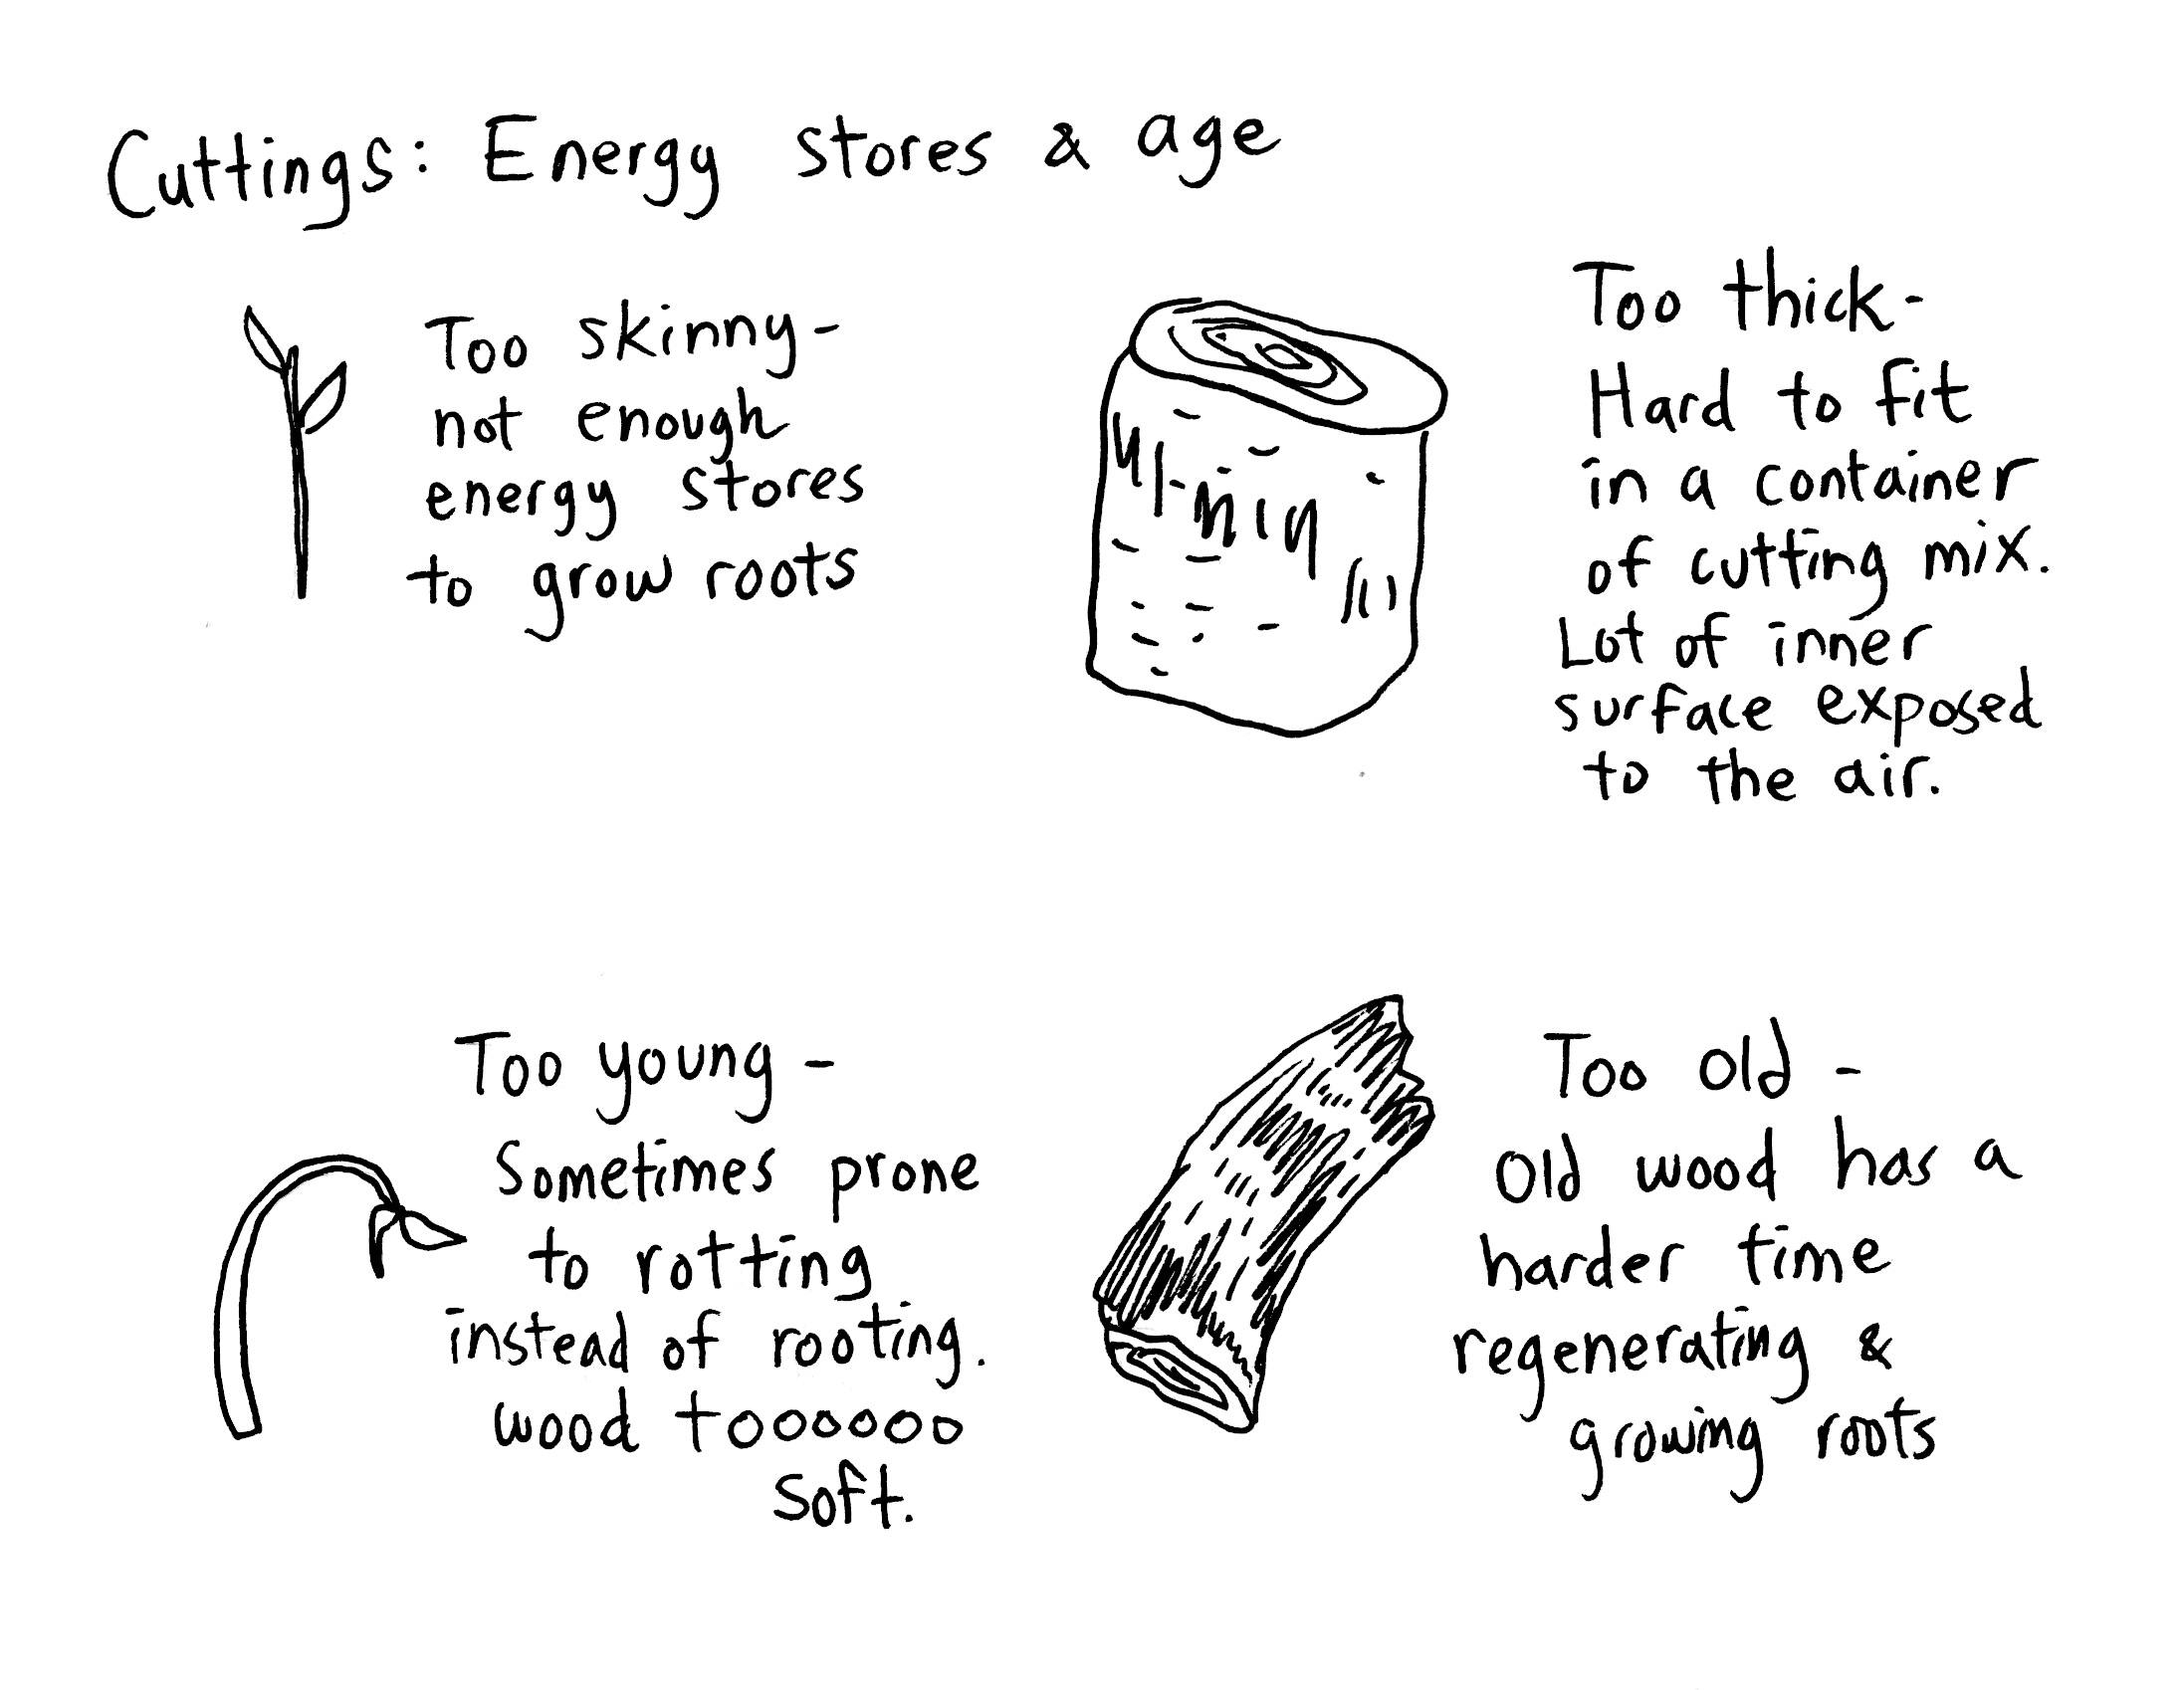 Cuttings: Energy stores & age
Too skinny-
not enough
energy stores
to grow roots
Too thick-
Hard to fit
in a container
of cutting mix.
Lot of inner
surface exposed
to the air.
Too young-
Sometimes prone
to rotting
instead of rooting.
wood tooooooo
soft.
Too old-
Old wood has a
harder time
regenerating &
growing roots